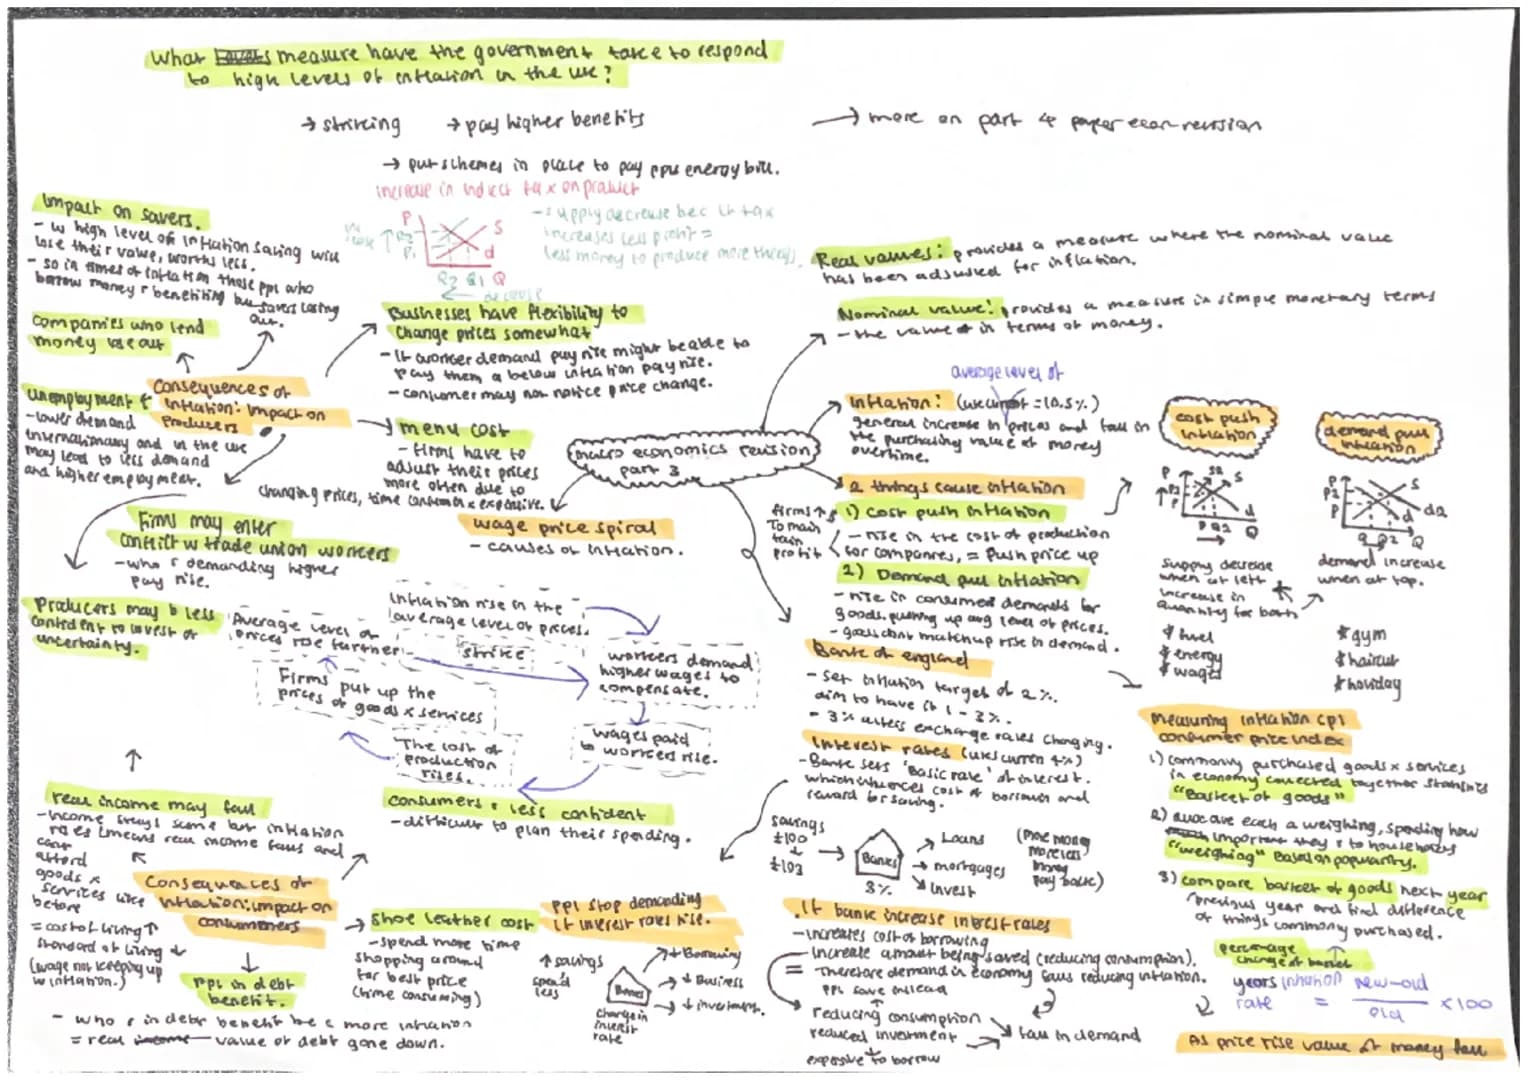 What measure have the government take to respond
to high levels of inflation in the uk?
→ striking → pay higher benefits
→ more on part 4 paper econ revision
→ put schemes in place to pay ppl energy bill.
increase in indirect tax on product
P
P2
P1
S
d
Q2 Q1 Q
decrease
- supply decrease bec it tax
increases less profit =
less money to produce more things.
Impact on savers.
- w high level of inflation saving will
lose their value, worths less.
- so in times of inflation those ppl who
borrow money r benefiting but savers losing
out.
Companies who lend
money lose out
Businesses have flexibility to
change prices somewhat
- If worker demand pay rise might be able to
pay them a below inflation pay rise.
- consumer may not notice price change.
Consequences of
inflation: impact on
Producers
Unemployment
- lower demand
internationally and in the uk
may lead to less demand
and higher employment.
menu cost
- firms have to
adjust their prices
more often due to
changing prices, time consum x expensive.
Firms may enter
conflict w trade union workers
- who r demanding higher
pay rise.
Producers may b less
confident to invest of
uncertainty.
macro economics revision
part 3
wage price spiral
- causes of inflation.
Inflation rise in the
average level of prices.
strike
workers demand
higher wages to
compensate.
wages paid
to workers rise.
The cost of
production
rises.
Firms put up the
prices of goods x services
Average level of
prices rise further
Real values: provides a measure where the nominal value
has been adjusted for inflation.
Nominal value: provides a measure in simple monetary terms
- the value in terms of money.
average level of
Inflation: (uk current = 10.5%)
general increase in prices and fall in
the purchasing value of money
overtime.
2 things cause inflation
1) cost push inflation
- rise in the cost of production
for companies, = push price up
firms ↑
To main
tain
profit
2) Demand pull inflation
- rise in consumer demands for
goods, pushing up avg level of prices.
- goods dont match up rise in demand.
cost push
inflation
P
P2
P
S2 S
d
Q Q2 Q
supply decrease
when at left
increase in
quantity for both
* fuel
* energy
* wages
demand pull
inflation
P
P2
P
S
d2
d
Q Q2 Q
demand increase
when at top.
* gym
* haircut
* holiday
Bank of england
- set inflation target of 2%.
aim to have it 1 - 3%.
- 3% unless exchange rates changing.
Interest rates (uks current 4%)
- Bank sets 'basic rate' of interest.
which influences cost of borrowin and
reward for saving.
savings
£100
£103
Banks
3%
Loans
mortgages
invest
(more money
more less
money
pay back)
Measuring inflation cpi
consumer price index
1) commonly purchased goods x services
in economy collected together statistics
"Basket of goods"
2) allocate each a weighing, spending how
important they r to households
"weighing" Based on popularity.
3) compare basket of goods next year
previous year and find difference
of things commonly purchased.
percentage
change of basket
years inflation
rate = new-old
old × 100
As price rise value of money fall
consumers r less confident
- difficult to plan their spending.
real income may fall
- income stays same but inflation
rises (means real income falls and
cant
afford
goods x
services like
before
= cost of living ↑
standard of living ↓
(wage not keeping up
w inflation.)
Consequences of
inflation: impact on
consumers
→ shoe leather cost
- spend more time
shopping around
for best price
(time consuming)
ppl in debt
benefit.
- who r in debt benefit bec more inflation
= real income value of debt gone down.
ppl stop demanding
if interest rates rise.
↑ savings
spend
less
Banks
change in
interest
rate
↓ Borrowing
↓ Business
↓ investment.
If bank increase interest rates
- increases cost of borrowing
- increase amount being saved (reducing consumption).
= Therefore demand in economy falls reducing inflation.
ppl save instead
reducing consumption
reduced investment
expensive to borrow
fall in demand